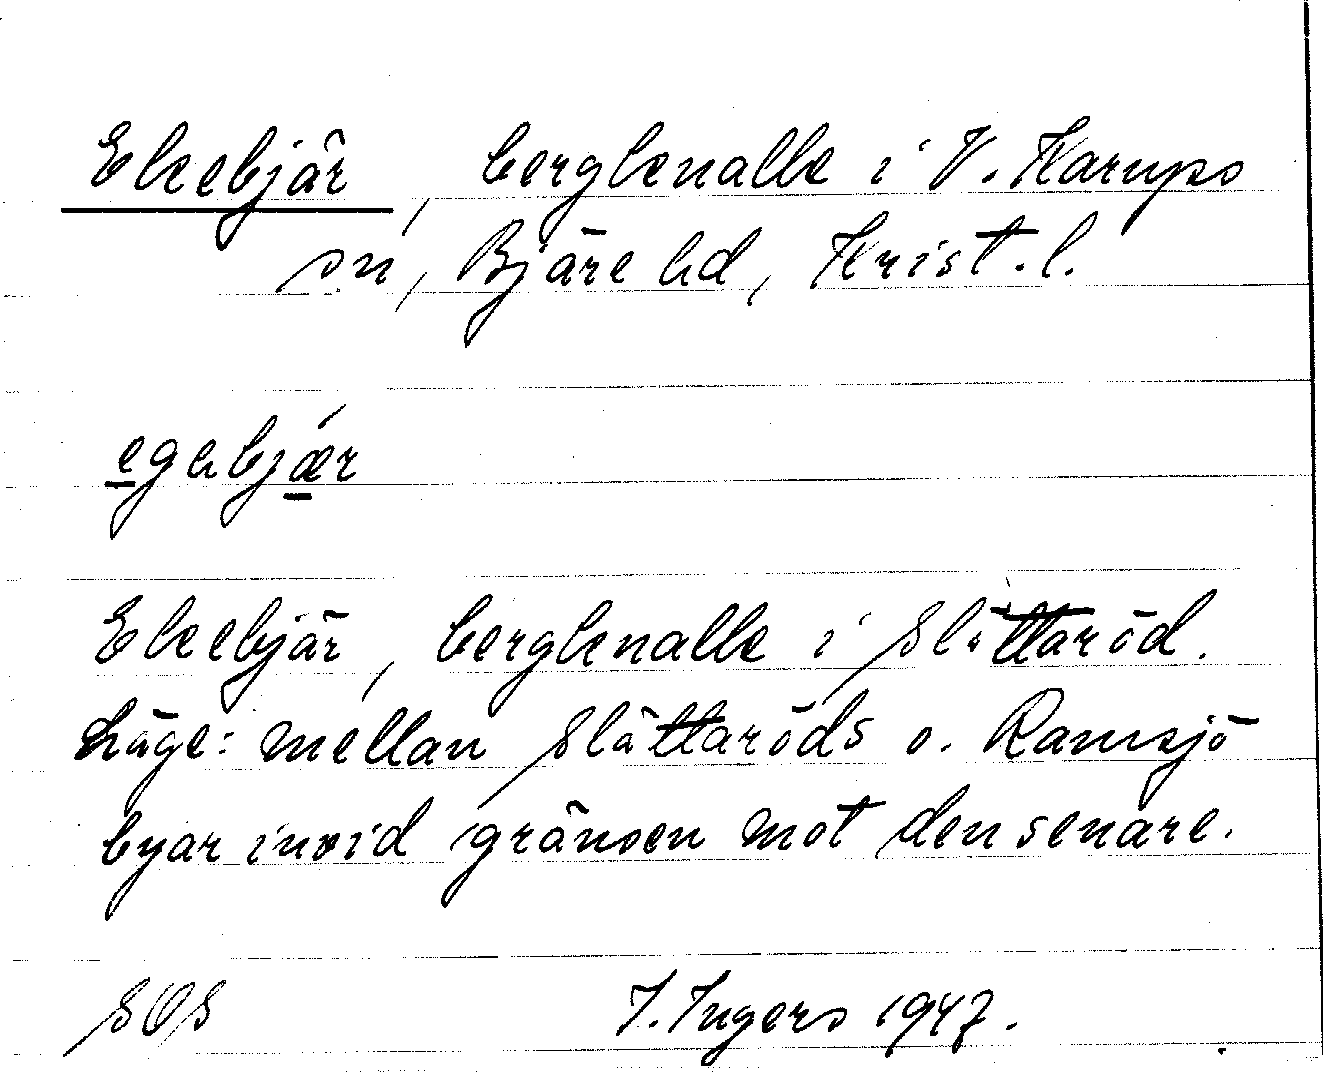 Ekebjär, bergknalle i V. Karups
sn, Bjäre hd, Krist. l.
egabjǽr
Ekebjär, bergknalle i Slättaröd.
Läge: mellan Slättaröds o. Ramsjö
byar invid gränsen mot den senare.
SOS I. Ingers 1947.